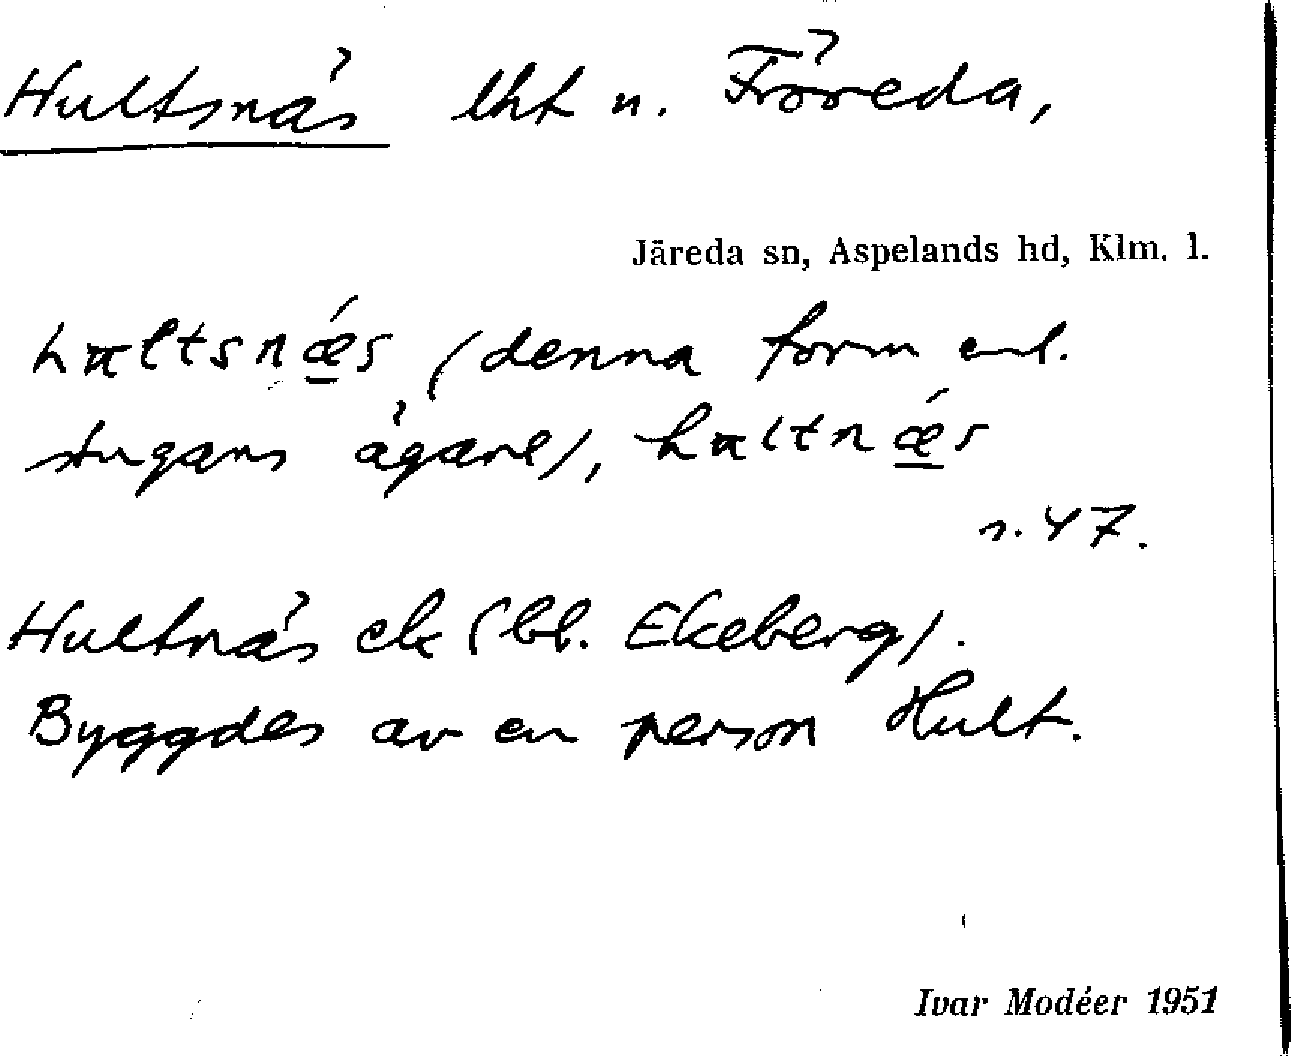 Hultsnäs lht u. Fröreda,
Järeda sn, Aspelands hd, Klm. l.
hultsnǽs (denna form enl.
stugans ägare), hultnǽs
s. 47.
Hultnäs ek (bl. Ekeberg).
Byggdes av en person Hult.
Ivar Modéer 1951